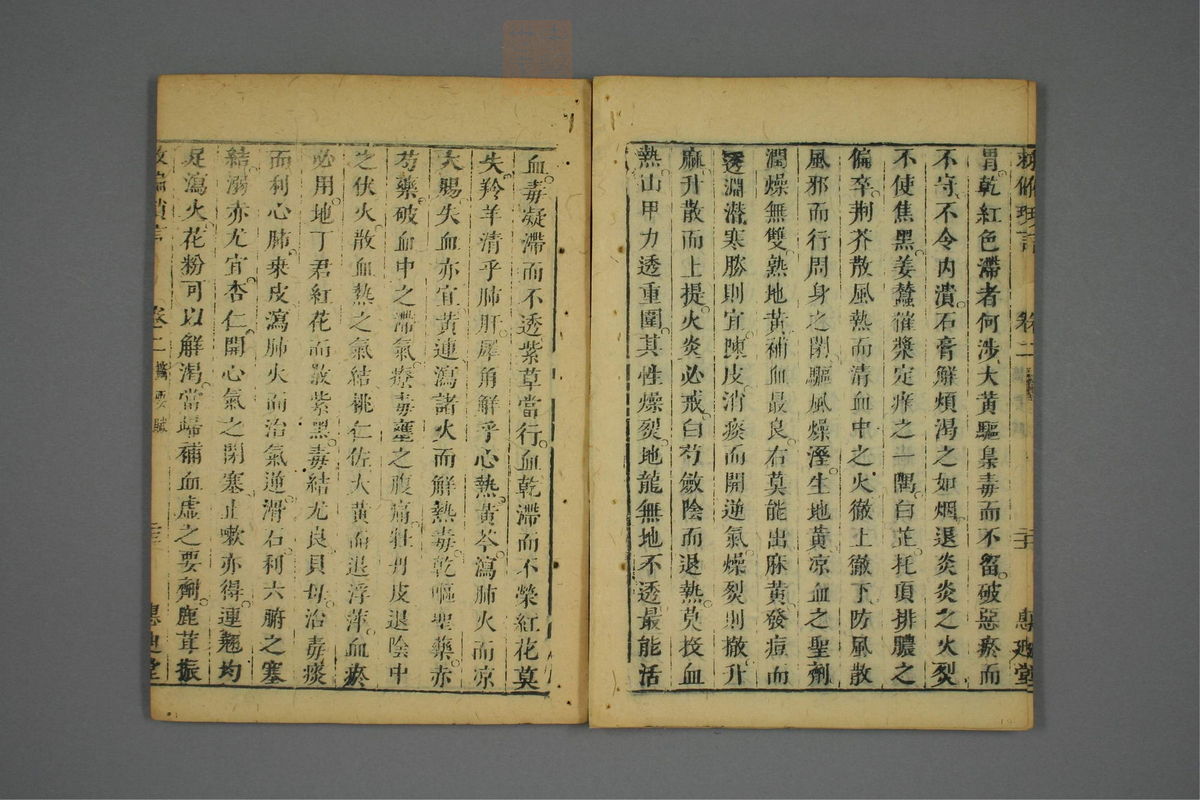 救偏瑣言 卷二 二十 惠迪堂
胃乾紅色滯者何涉大黃驅梟毒而不留破惡瘀而
不守不令內潰石膏解煩渴之如烟退炎炎之火裂
不使焦黑姜蠶催漿定癢之一隅白芷托項排膿之
偏卒荆芥散風熱而清血中之火徹上徹下防風散
風邪而行周身之閉驅風燥溼生地黃凉血之聖劑
潤燥無雙熟地黃補血最良右莫能出麻黃發痘而
透淵潛寒勝則宜陳皮消痰而開逆氣燥裂則撤升
麻升散而上提火炎必戒白芍斂陰而退熱莫投血
熱山甲力透重圍其性燥裂地龍無地不透最能活
血毒凝滯而不透紫草當行血乾滯而不榮紅花莫
失羚羊清乎肺肝犀角解乎心熱黃芩瀉肺火而凉
大腸失血亦宜黃連瀉諸火而解熱毒乾嘔聖藥赤
芍藥破血中之滯氣療毒壅之腹痛牡丹皮退陰中
之伏火散血熱之氣結桃仁佐大黃而退浮萍血瘀
必用地丁君紅花而散紫黑毒結尤良貝母治毒痰
而利心肺桑皮瀉肺火而治氣逆滑石利六腑之塞
結溺亦尤宜杏仁開心氣之閉塞止嗽亦得連翹均
是瀉火花粉可以解渴當歸補血虛之要劑鹿茸振
救偏瑣言 卷二 備要賦 二十 惠迪堂